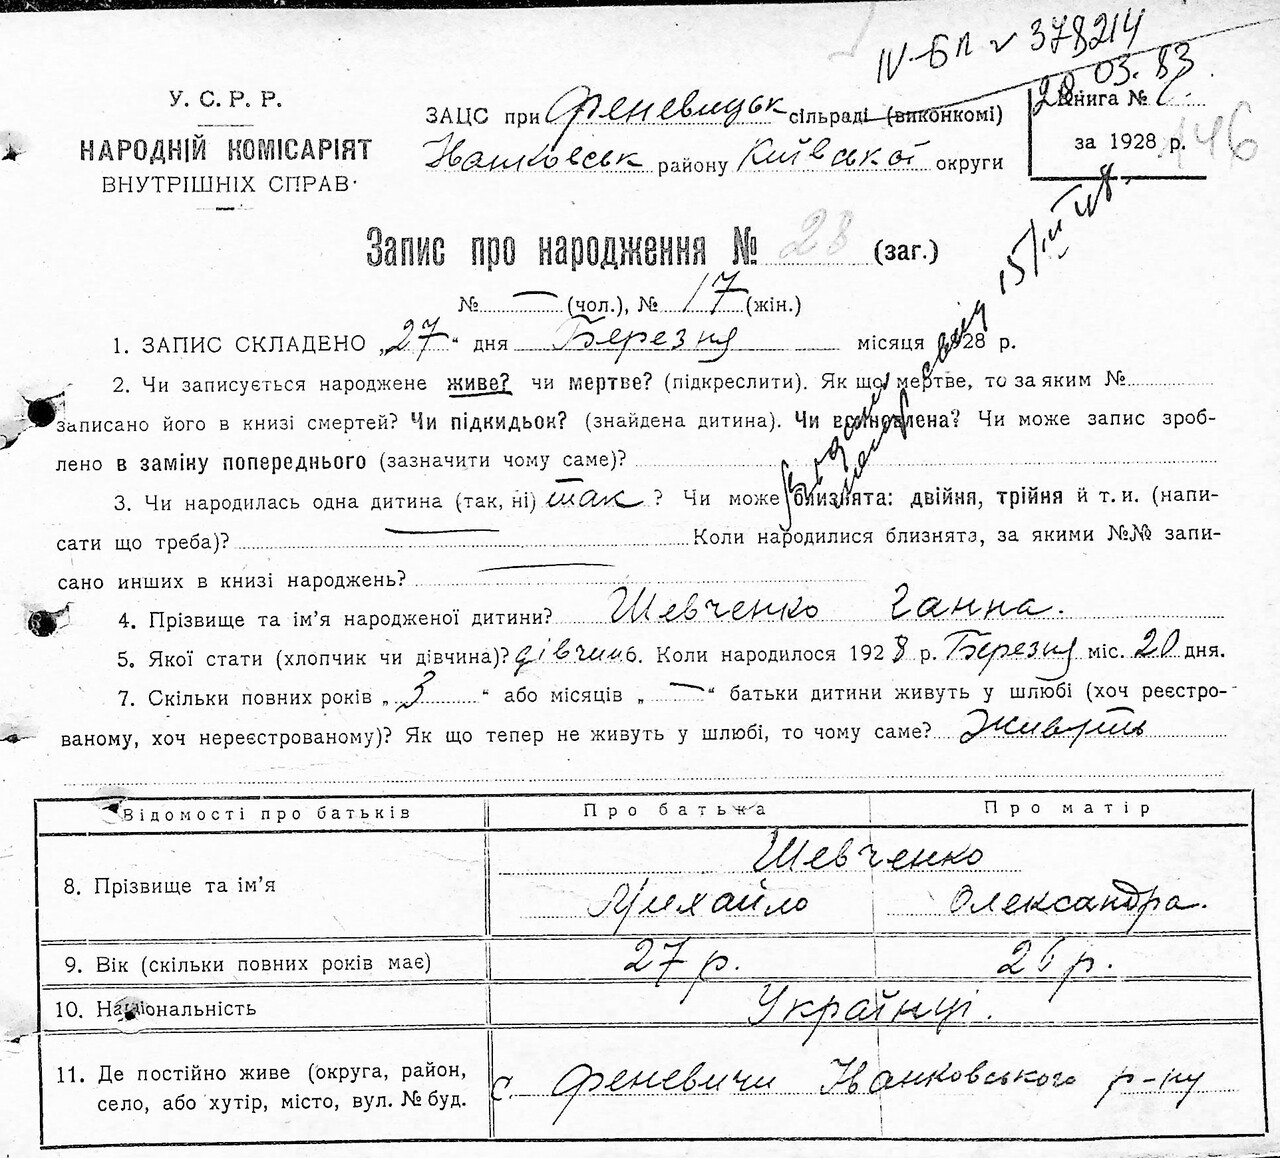 IV-БЛ № 378214
28.03.83
У. С. Р. Р.
НАРОДНІЙ КОМІСАРІЯТ
ВНУТРІШНІХ СПРАВ
ЗАЦС при Феневицьк сільраді (виконкомі)
Іванковськ району Київської округи
Книга №
за 1928 р.
146
Запис про народження № 28 (заг.)
№ — (чол.), № 17 (жін.)
1. ЗАПИС СКЛАДЕНО „27“ дня Березня місяця 1928 р.
2. Чи записується народжене живе? чи мертве? (підкреслити). Як що мертве, то за яким №
записано його в книзі смертей? Чи підкидьок? (знайдена дитина). Чи всиновлена? Чи може запис зроб-
лено в заміну попереднього (зазначити чому саме)?
3. Чи народилась одна дитина (так, ні) так ? Чи може близнята: двійня, трійня й т. и. (напи-
сати що треба)? — Коли народилися близнята, за якими №№ запи-
сано инших в книзі народжень? —
4. Прізвище та ім'я народженої дитини? Шевченко Ганна.
5. Якої стати (хлопчик чи дівчина)? дівчин 6. Коли народилось 1928 р. Березня міс. 20 дня.
7. Скільки повних років „3“ або місяців „—“ батьки дитини живуть у шлюбі (хоч реєстро-
ваному, хоч нереєстрованому)? Як що тепер не живуть у шлюбі, то чому саме? Живуть
Відомості про батьків Про батька Про матір
Шевченко
8. Прізвище та ім'я Михайло Олександра.
9. Вік (скільки повних років має) 27 р. 26 р.
10. Національність Українці.
11. Де постійно живе (округа, район,
село, або хутір, місто, вул. № буд. с. Феневичи Іванковського р-ну